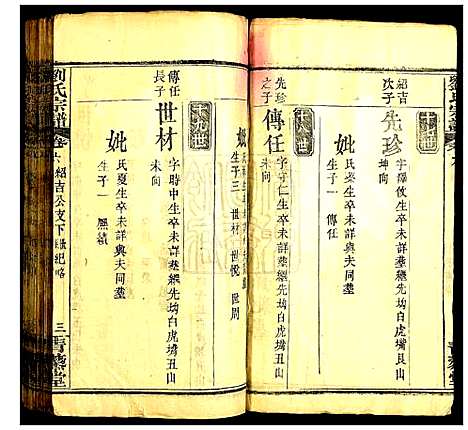 紹吉
次子
先珍
字擇攸生卒未詳葬繼先坳白虎嘴艮山
坤向
妣
氏 生卒未詳與夫同塋
生子一 傳任
先珍
之子
傳任
字守仁生卒未詳葬繼先坳白虎嘴丑山
未向
妣
生子三 世材 世悅 世周
十九世
傳任
長子
世材
字時中生卒未詳葬繼先坳白虎嘴丑山
未向
妣
氏夏生卒未詳與夫同塋
生子一
劉氏宗譜
卷六 紹吉公支下 紀略
三 青藜堂